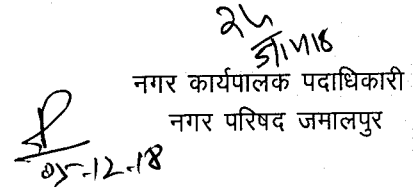 नगर कार्यपालक पदाधिकारी
नगर परिषद जमालपुर
05-12-18